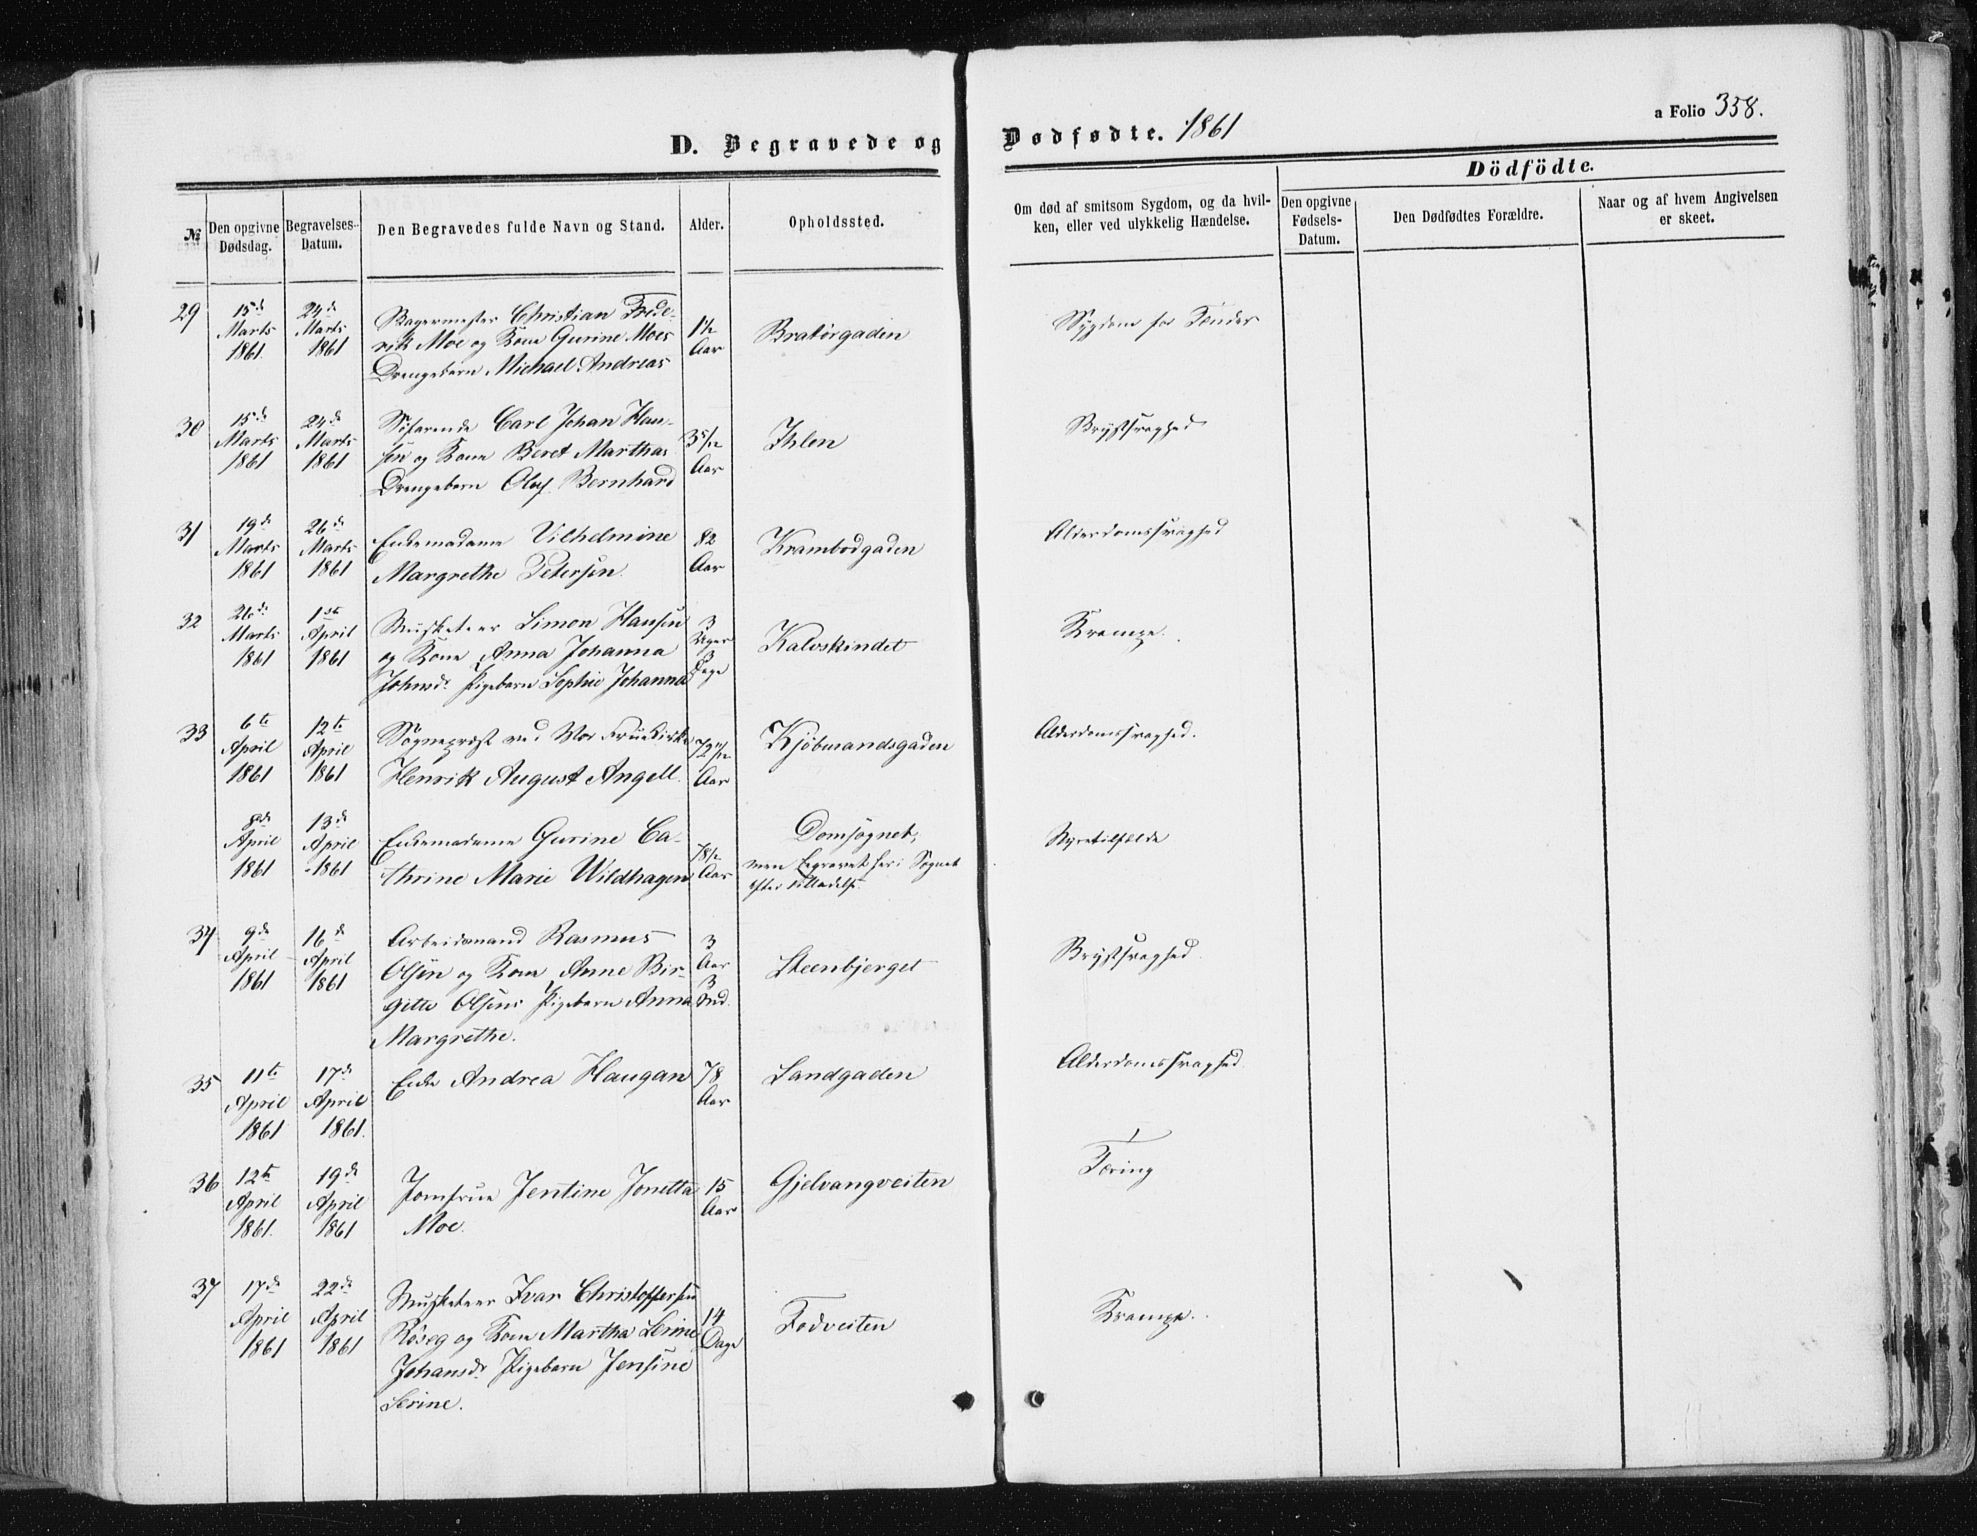 D. Begravede og Dødfødte. 1861
a Folio 358.
Dödfödte.
№
Den opgivne Dødsdag.
Begravelses-Datum.
Den Begravedes fulde Navn og Stand.
Alder.
Opholdssted.
Om død af smitsom Sygdom, og da hvil-
ken, eller ved ulykkelig Hændelse.
Den opgivne Fødsels-Datum.
Den Dødfødtes Forældre.
Naar og af hvem Angivelsen
er skeet.
29
15de Marts 1861.
24de Marts 1861
Bagermester Christian Frede-
rik Moe og Kone Gurine Moes
Drengebarn Michael Andreas
1½ Aar
Bratørgaden
Sygdom for Tænder
30
15de Marts 1861
24de Marts 1861
Søfarende Carl Johan Han-
sen og Kone Beret Marthas
Drengebarn Oluf Bernhard
Aar
Ihlen
Brystsvaghed
31
19de Marts 1861
26de Marts 1861
Enkemadame Vilhelmine
Margrethe Petersen.
82 Aar
Krambodgaden
Alderdomssvaghed
32
26de Marts 1861
1ste April 1861
Musketeer Simon Hansen
og Kone Anna Johanna
Johnsdr Pigebarn Sophie Johanna
3 Uger 3 Dage
Kalvskindet
Krampe.
33
6te April 1861
12te April 1861
Sognepræst ved Vor Fruekirke
Henrik August Angell.
Aar
Kjøbmandsgaden
Alderdomssvaghed.
8de April 1861
13de April 1861
Enkemadame Gurine Ca-
thrine Marie Wildhagen
78½ Aar
Domsognet,
men begravet her i Sognet
efter Tilladelse.
Nyretilfælde
34
9de April 1861
16de April 1861
Arbeidsmand Rasmus
Olsen og Kone Anne Bir-
gitte Olsens Pigebarn Anna
Margrethe.
3 Aar 3 Md.
Steenbjerget
Brystsvaghed.
35
11te April 1861
17de April 1861.
Enke Andrea Haugan
78 Aar
Sandgaden
Alderdomssvaghed
36
12te April 1861.
19de April 1861
Jomfrue Jentine Jonetta
Moe.
15 Aar
Gjelvangveiten
Tæring
37
17de April 1861
22de April 1861
Musketeer Ivar Christoffersen
Røseg og Kone Martha Serine
Johansdr Pigebarn Jensine
Serine.
14 Dage
Fodveiten
Krampe.